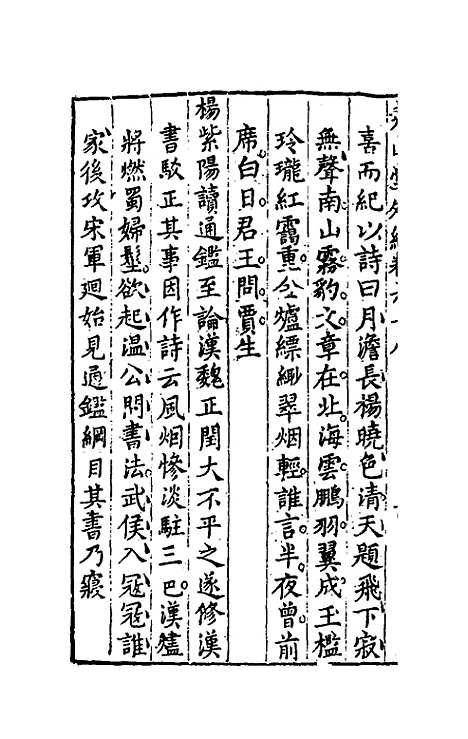 堯山堂外紀卷六十八
喜而紀以詩曰月澹長楊曉色清天題飛下寂
無聲南山霧豹文章在北海雲鵬羽翼成玉檻
玲瓏紅靄重金爐縹緲翠烟輕誰言半夜曾前
席白日君王問賈生
楊紫陽讀通鑑至論漢魏正閏大不平之遂修漢
書駁正其事因作詩云風烟慘淡駐三巴漢燼
將燃蜀婦髽欲起温公問書法武侯入冦冦誰
家後攻宋軍廻始見通鑑綱目其書乃寢